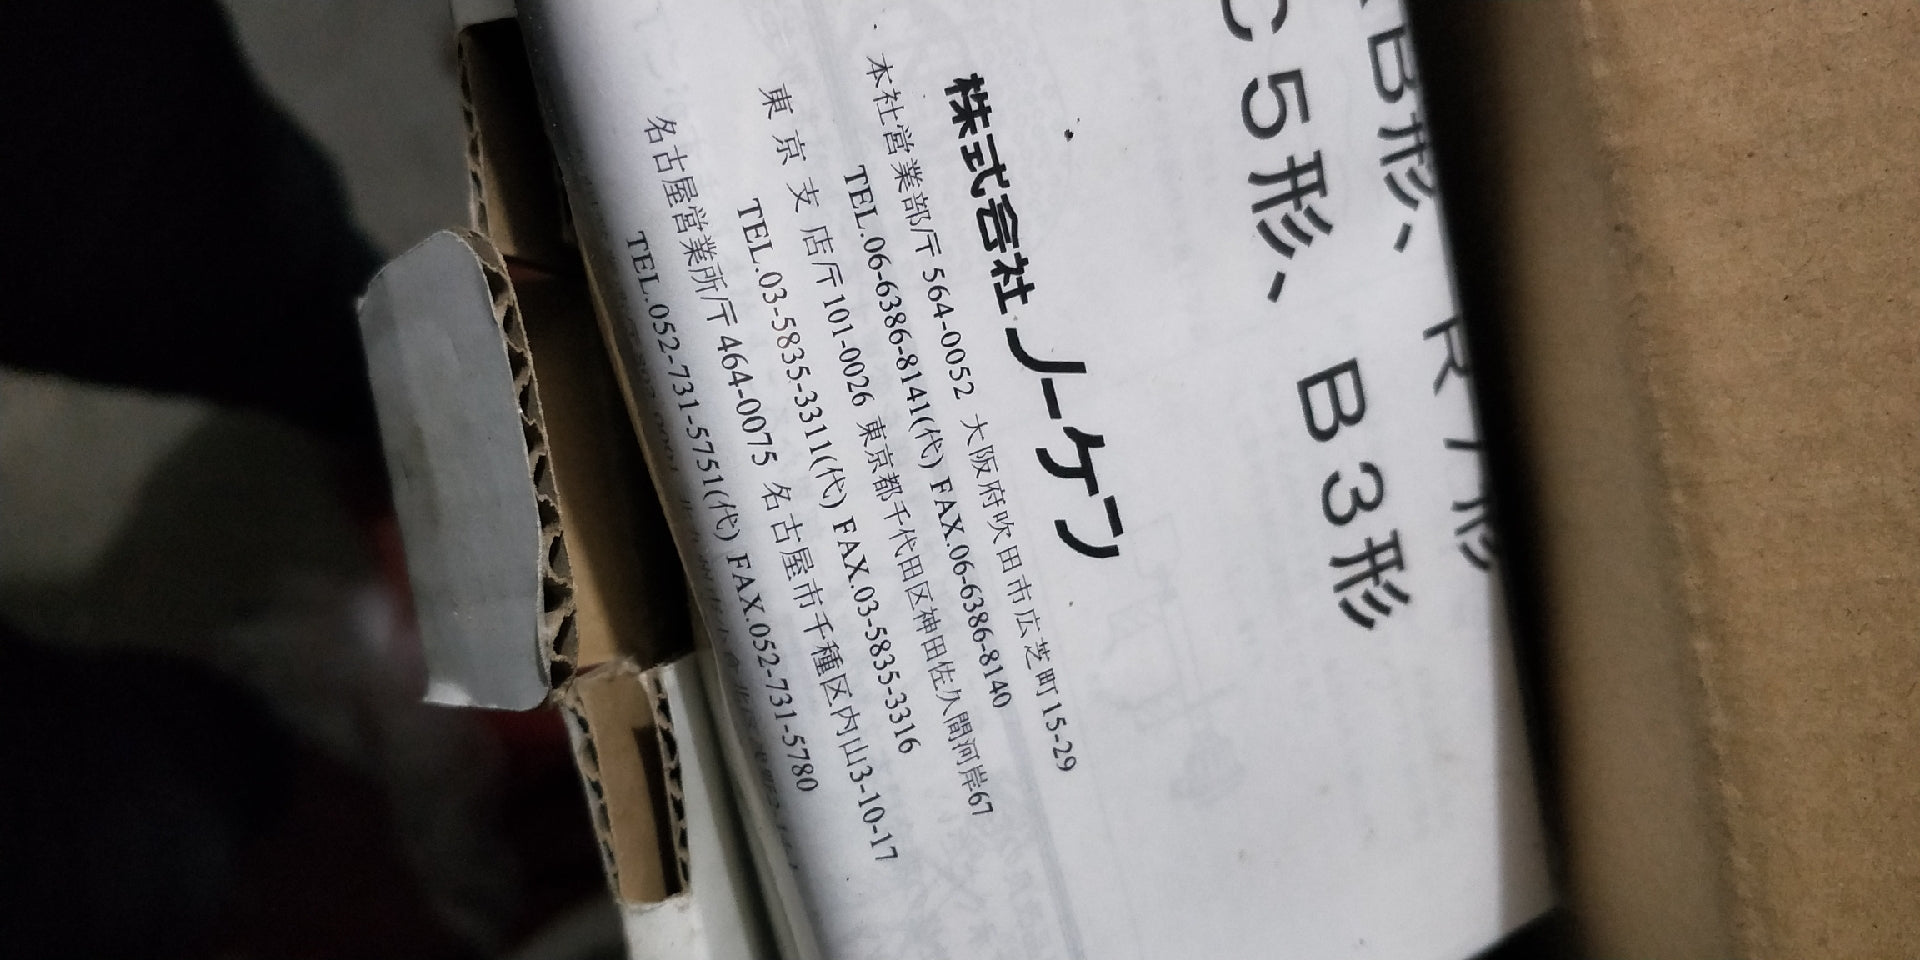 B形、R7形
C5形、B3形
株式会社ノーケン
本社営業部/〒564-0052 大阪府吹田市広芝町15-29
TEL.06-6386-8141(代) FAX.06-6386-8140
東京支店/〒101-0026 東京都千代田区神田佐久間河岸67
TEL.03-5835-3311(代) FAX.03-5835-3316
名古屋営業所/〒464-0075 名古屋市千種区内山3-10-17
TEL.052-731-5751(代) FAX.052-731-5780